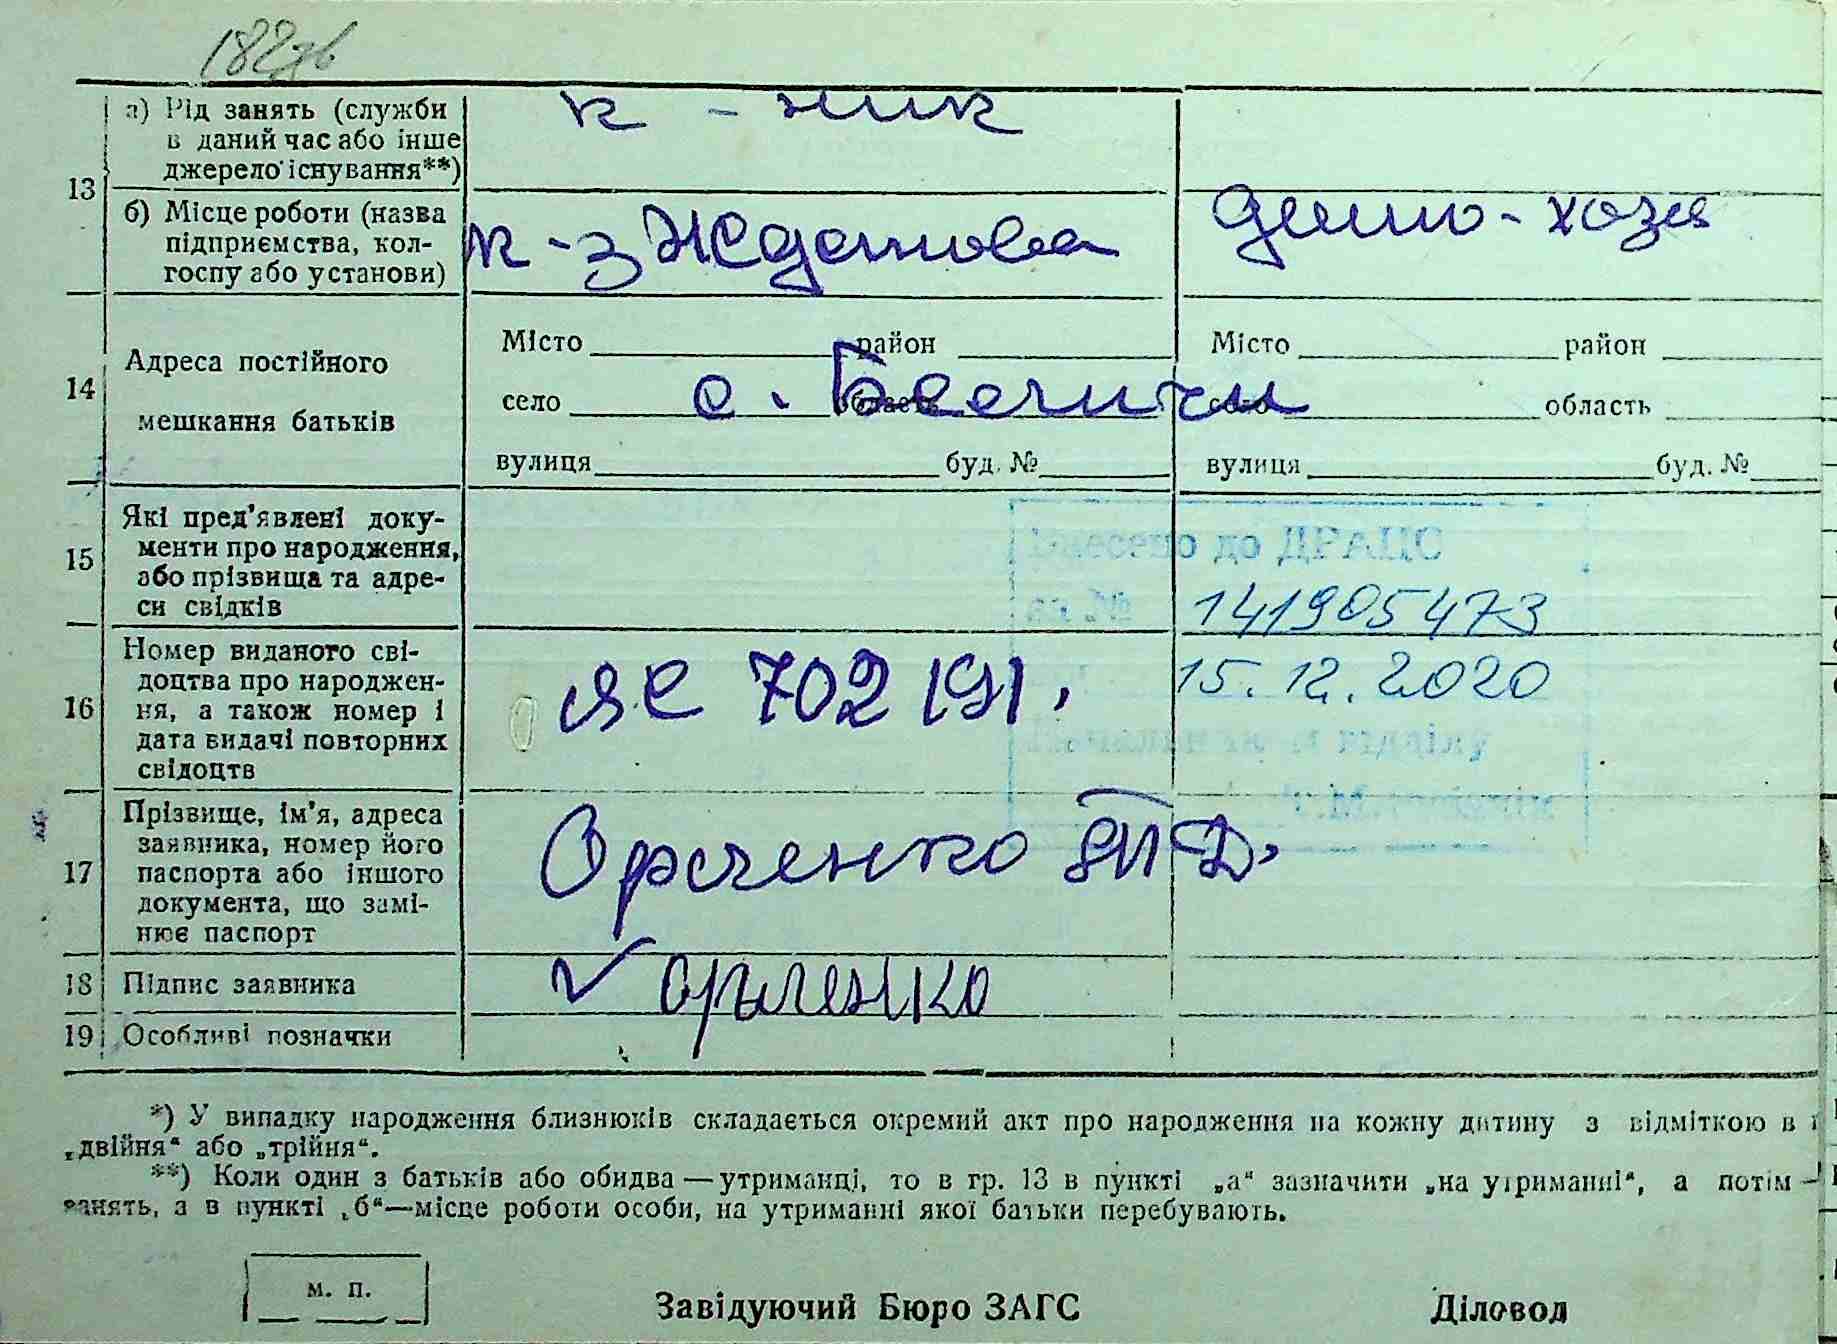 182дв
а) Рід занять (служби
в даний час або інше
джерело існування**)
к - ник
13
б) Місце роботи (назва
підприємства, кол-
госпу або установи)
к-з Жданова
домо-хозя
14
Адреса постійного
мешкання батьків
Місто район
село область
с. Бегичи
вулиця буд. №
Місто район
село область
вулиця буд. №
15
Які пред’явлені доку-
менти про народження,
або прізвища та адре-
си свідків
Внесено до ДРАЦС
за № 141905473
15.12.2020
відділу
16
Номер виданого сві-
доцтва про народжен-
ня, а також номер і
дата видачі повторних
свідоцтв
ЯС 702191.
17
Прізвище, ім’я, адреса
заявника, номер його
паспорта або іншого
документа, що замі-
нює паспорт
18
Підпис заявника
19
Особливі позначки
*) У випадку народження близнюків складається окремий акт про народження на кожну дитину з відміткою в
„двійня“ або „трійня“.
**) Коли один з батьків або обидва — утриманці, то в гр. 13 в пункті „а“ зазначити „на утриманні“, а потім —
занять, а в пункті „б“—місце роботи особи, на утриманні якої батьки перебувають.
м. п.
Завідуючий Бюро ЗАГС
Діловод